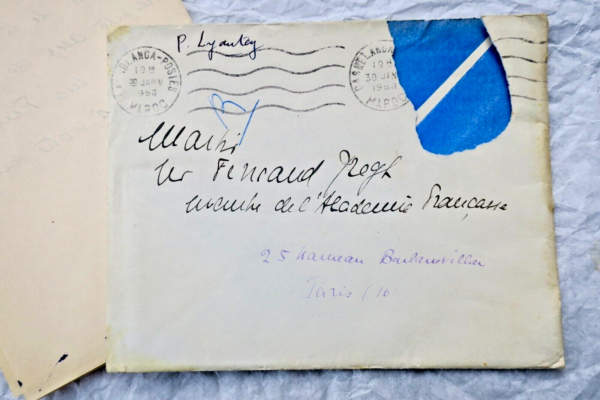 P. Lyautey
CASABLANCA-POSTES
19H
30 JANV
MAROC
19H
30 JANV
MAROC
Mr Fernand Gregh
membre de l'Academie Française
25 Hameau Boulainvillier
Paris (16